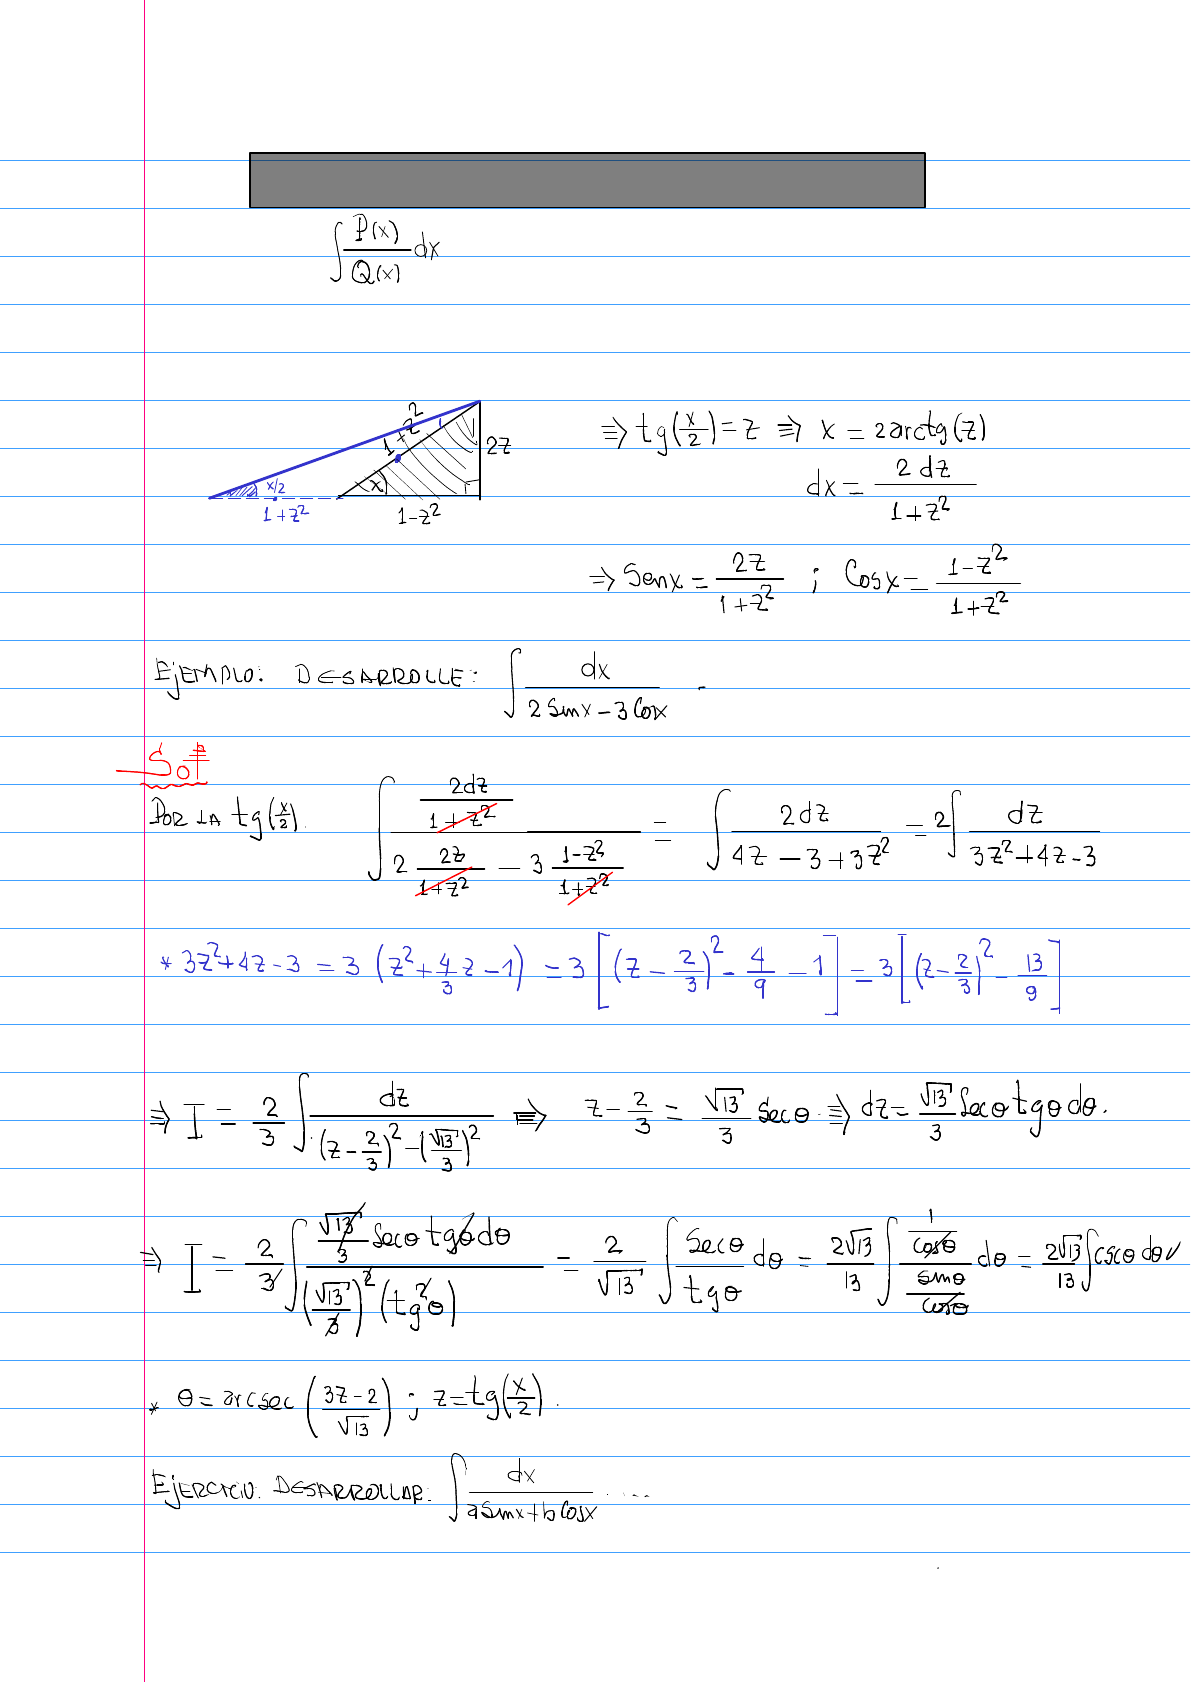 ∫ P(x)/Q(x) dx
1+z² 2z x x/2 1+z² 1-z²
⇒ tg(x/2) = z ⇒ x = 2arctg(z)
dx = 2dz/(1+z²)
⇒ Senx = 2z/(1+z²) ; Cosx = (1-z²)/(1+z²)
EJEMPLO: DESARROLLE: ∫ dx/(2Sinx - 3Cosx) .
Sol
POR LA tg(x/2). ∫ (2dz/(1+z²))/(2 2z/(1+z²) - 3 (1-z²)/(1+z²)) = ∫ 2dz/(4z - 3 + 3z²) = 2∫ dz/(3z²+4z-3)
* 3z²+4z-3 = 3(z²+4/3 z-1) = 3[(z - 2/3)² - 4/9 - 1] = 3[(z-2/3)² - 13/9]
⇒ I = 2/3 ∫ dz/((z-2/3)² - (√13/3)²) ⇒ z - 2/3 = √13/3 Secθ. ⇒ dz = √13/3 Secθ tgθ dθ.
⇒ I = 2/3 ∫ (√13/3 Secθ tgθ dθ)/((√13/3)² (tg²θ)) = 2/√13 ∫ Secθ/tgθ dθ = 2√13/13 ∫ (1/cosθ)/(sinθ/cosθ) dθ = 2√13/13 ∫cscθ dθ✓
* θ = arcsec((3z-2)/√13) ; z = tg(x/2).
EJERCICIO: DESARROLLAR: ∫ dx/(aSinx+bCosx) ....